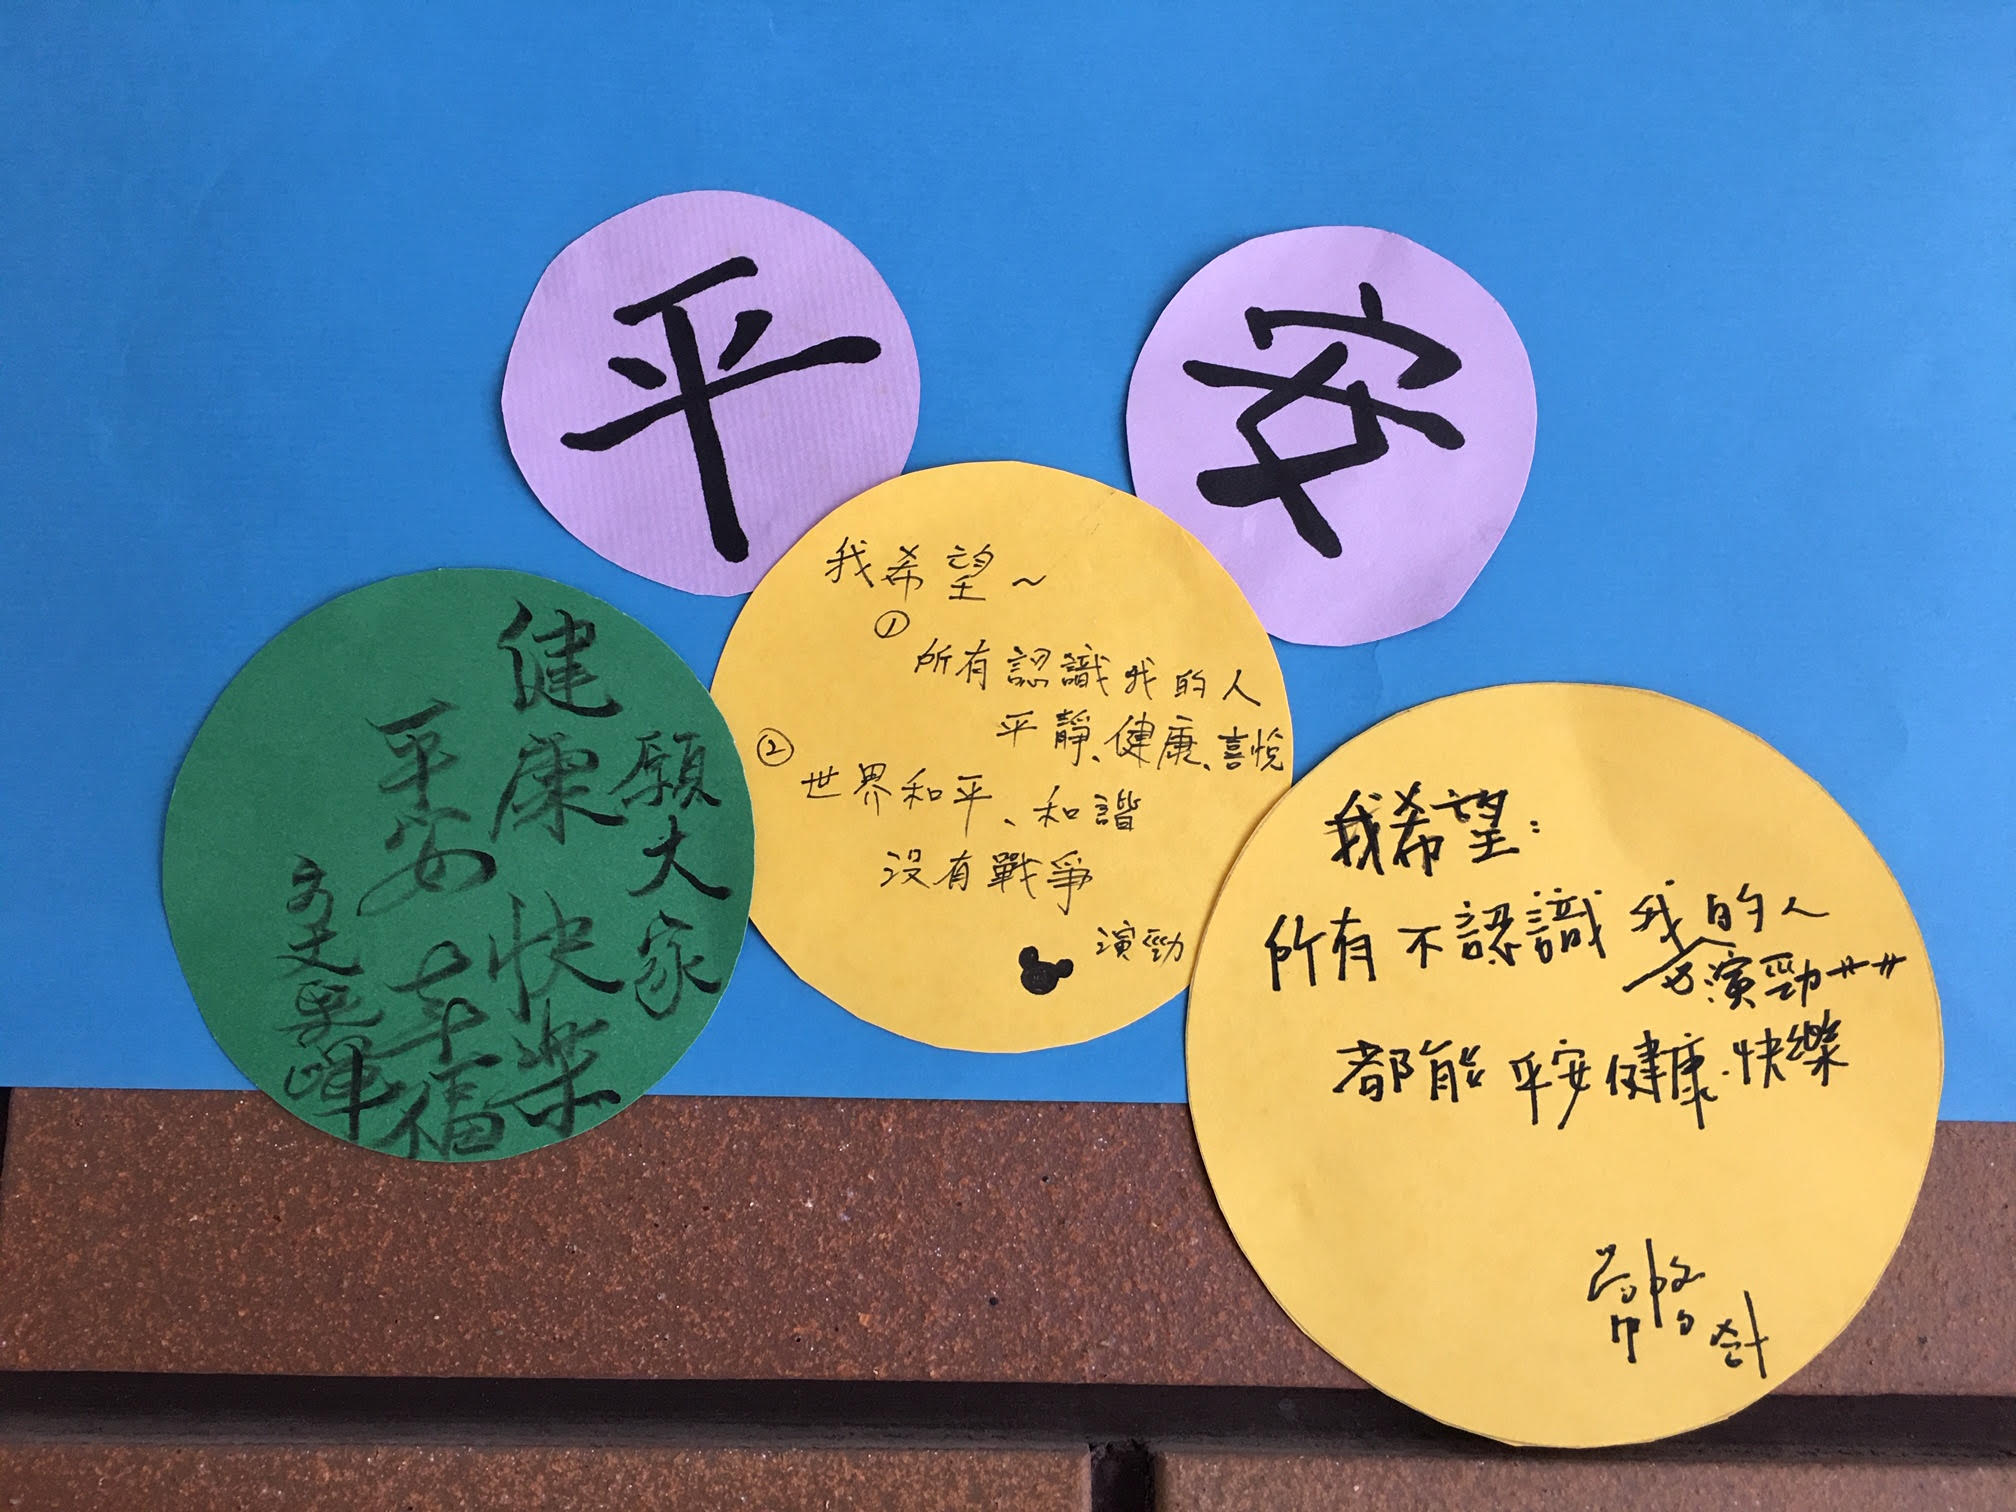 平
安
我希望~
①
所有認識我的人
平靜、健康、喜悅
②
世界和平、和諧
沒有戰爭
演勁
願大家
健康快樂
平安幸福
我希望:
所有不認識我的人
演勁
都能平安健康.快樂